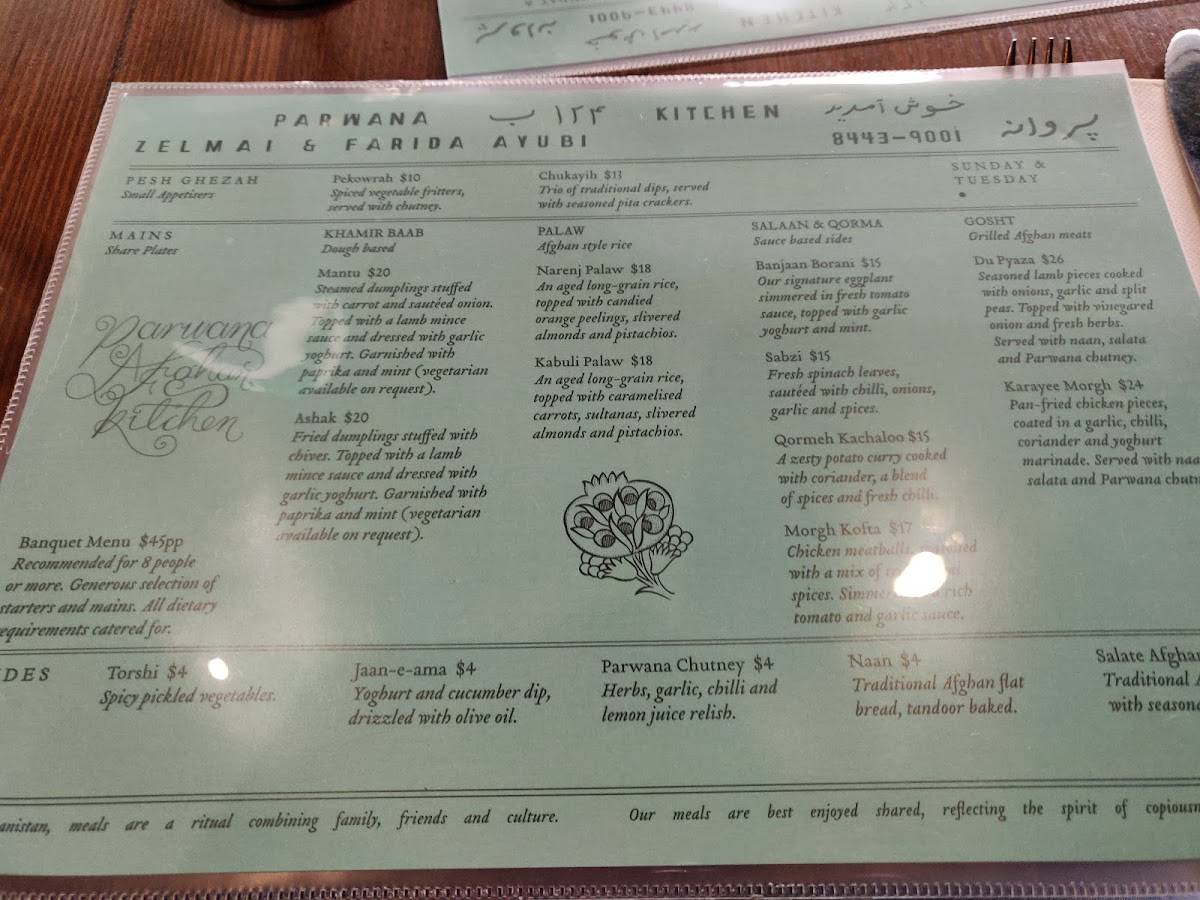 8443-9001
KITCHEN
PARWANA ۱۲۴ ب KITCHEN خوش آمدید
ZELMAI & FARIDA AYUBI 8443-9001 پروانه
PESH GHEZAH
Small Appetisers
Pekowrah $10
Spiced vegetable fritters,
served with chutney.
Chukayih $13
Trio of traditional dips, served
with seasoned pita crackers.
SUNDAY &
TUESDAY
MAINS
Share Plates
Parwana
Afghan
kitchen
Banquet Menu $45pp
Recommended for 8 people
or more. Generous selection of
starters and mains. All dietary
equirements catered for.
KHAMIR BAAB
Dough based
Mantu $20
Steamed dumplings stuffed
with carrot and sautéed onion.
Topped with a lamb mince
sauce and dressed with garlic
yoghurt. Garnished with
paprika and mint (vegetarian
available on request).
Ashak $20
Fried dumplings stuffed with
chives. Topped with a lamb
mince sauce and dressed with
garlic yoghurt. Garnished with
paprika and mint (vegetarian
available on request).
PALAW
Afghan style rice
Narenj Palaw $18
An aged long-grain rice,
topped with candied
orange peelings, slivered
almonds and pistachios.
Kabuli Palaw $18
An aged long-grain rice,
topped with caramelised
carrots, sultanas, slivered
almonds and pistachios.
SALAAN & QORMA
Sauce based sides
Banjaan Borani $15
Our signature eggplant
simmered in fresh tomato
sauce, topped with garlic
yoghurt and mint.
Sabzi $15
Fresh spinach leaves,
sautéed with chilli, onions,
garlic and spices.
Qormeh Kachaloo $15
A zesty potato curry cooked
with coriander, a blend
of spices and fresh chilli.
Morgh Kofta $17
Chicken meatballs,
with a mix of
spices. rich
tomato and garlic sauce.
GOSHT
Grilled Afghan meats
Du Pyaza $26
Seasoned lamb pieces cooked
with onions, garlic and split
peas. Topped with vinegared
onion and fresh herbs.
Served with naan, salata
and Parwana chutney.
Karayee Morgh $24
Pan-fried chicken pieces,
coated in a garlic, chilli,
coriander and yoghurt
marinade. Served with naa
salata and Parwana chutn
DES
Torshi $4
Spicy pickled vegetables.
Jaan-e-ama $4
Yoghurt and cucumber dip,
drizzled with olive oil.
Parwana Chutney $4
Herbs, garlic, chilli and
lemon juice relish.
Naan $4
Traditional Afghan flat
bread, tandoor baked.
Salate Afghan
Traditional A
with season
anistan, meals are a ritual combining family, friends and culture. Our meals are best enjoyed shared, reflecting the spirit of copiousn